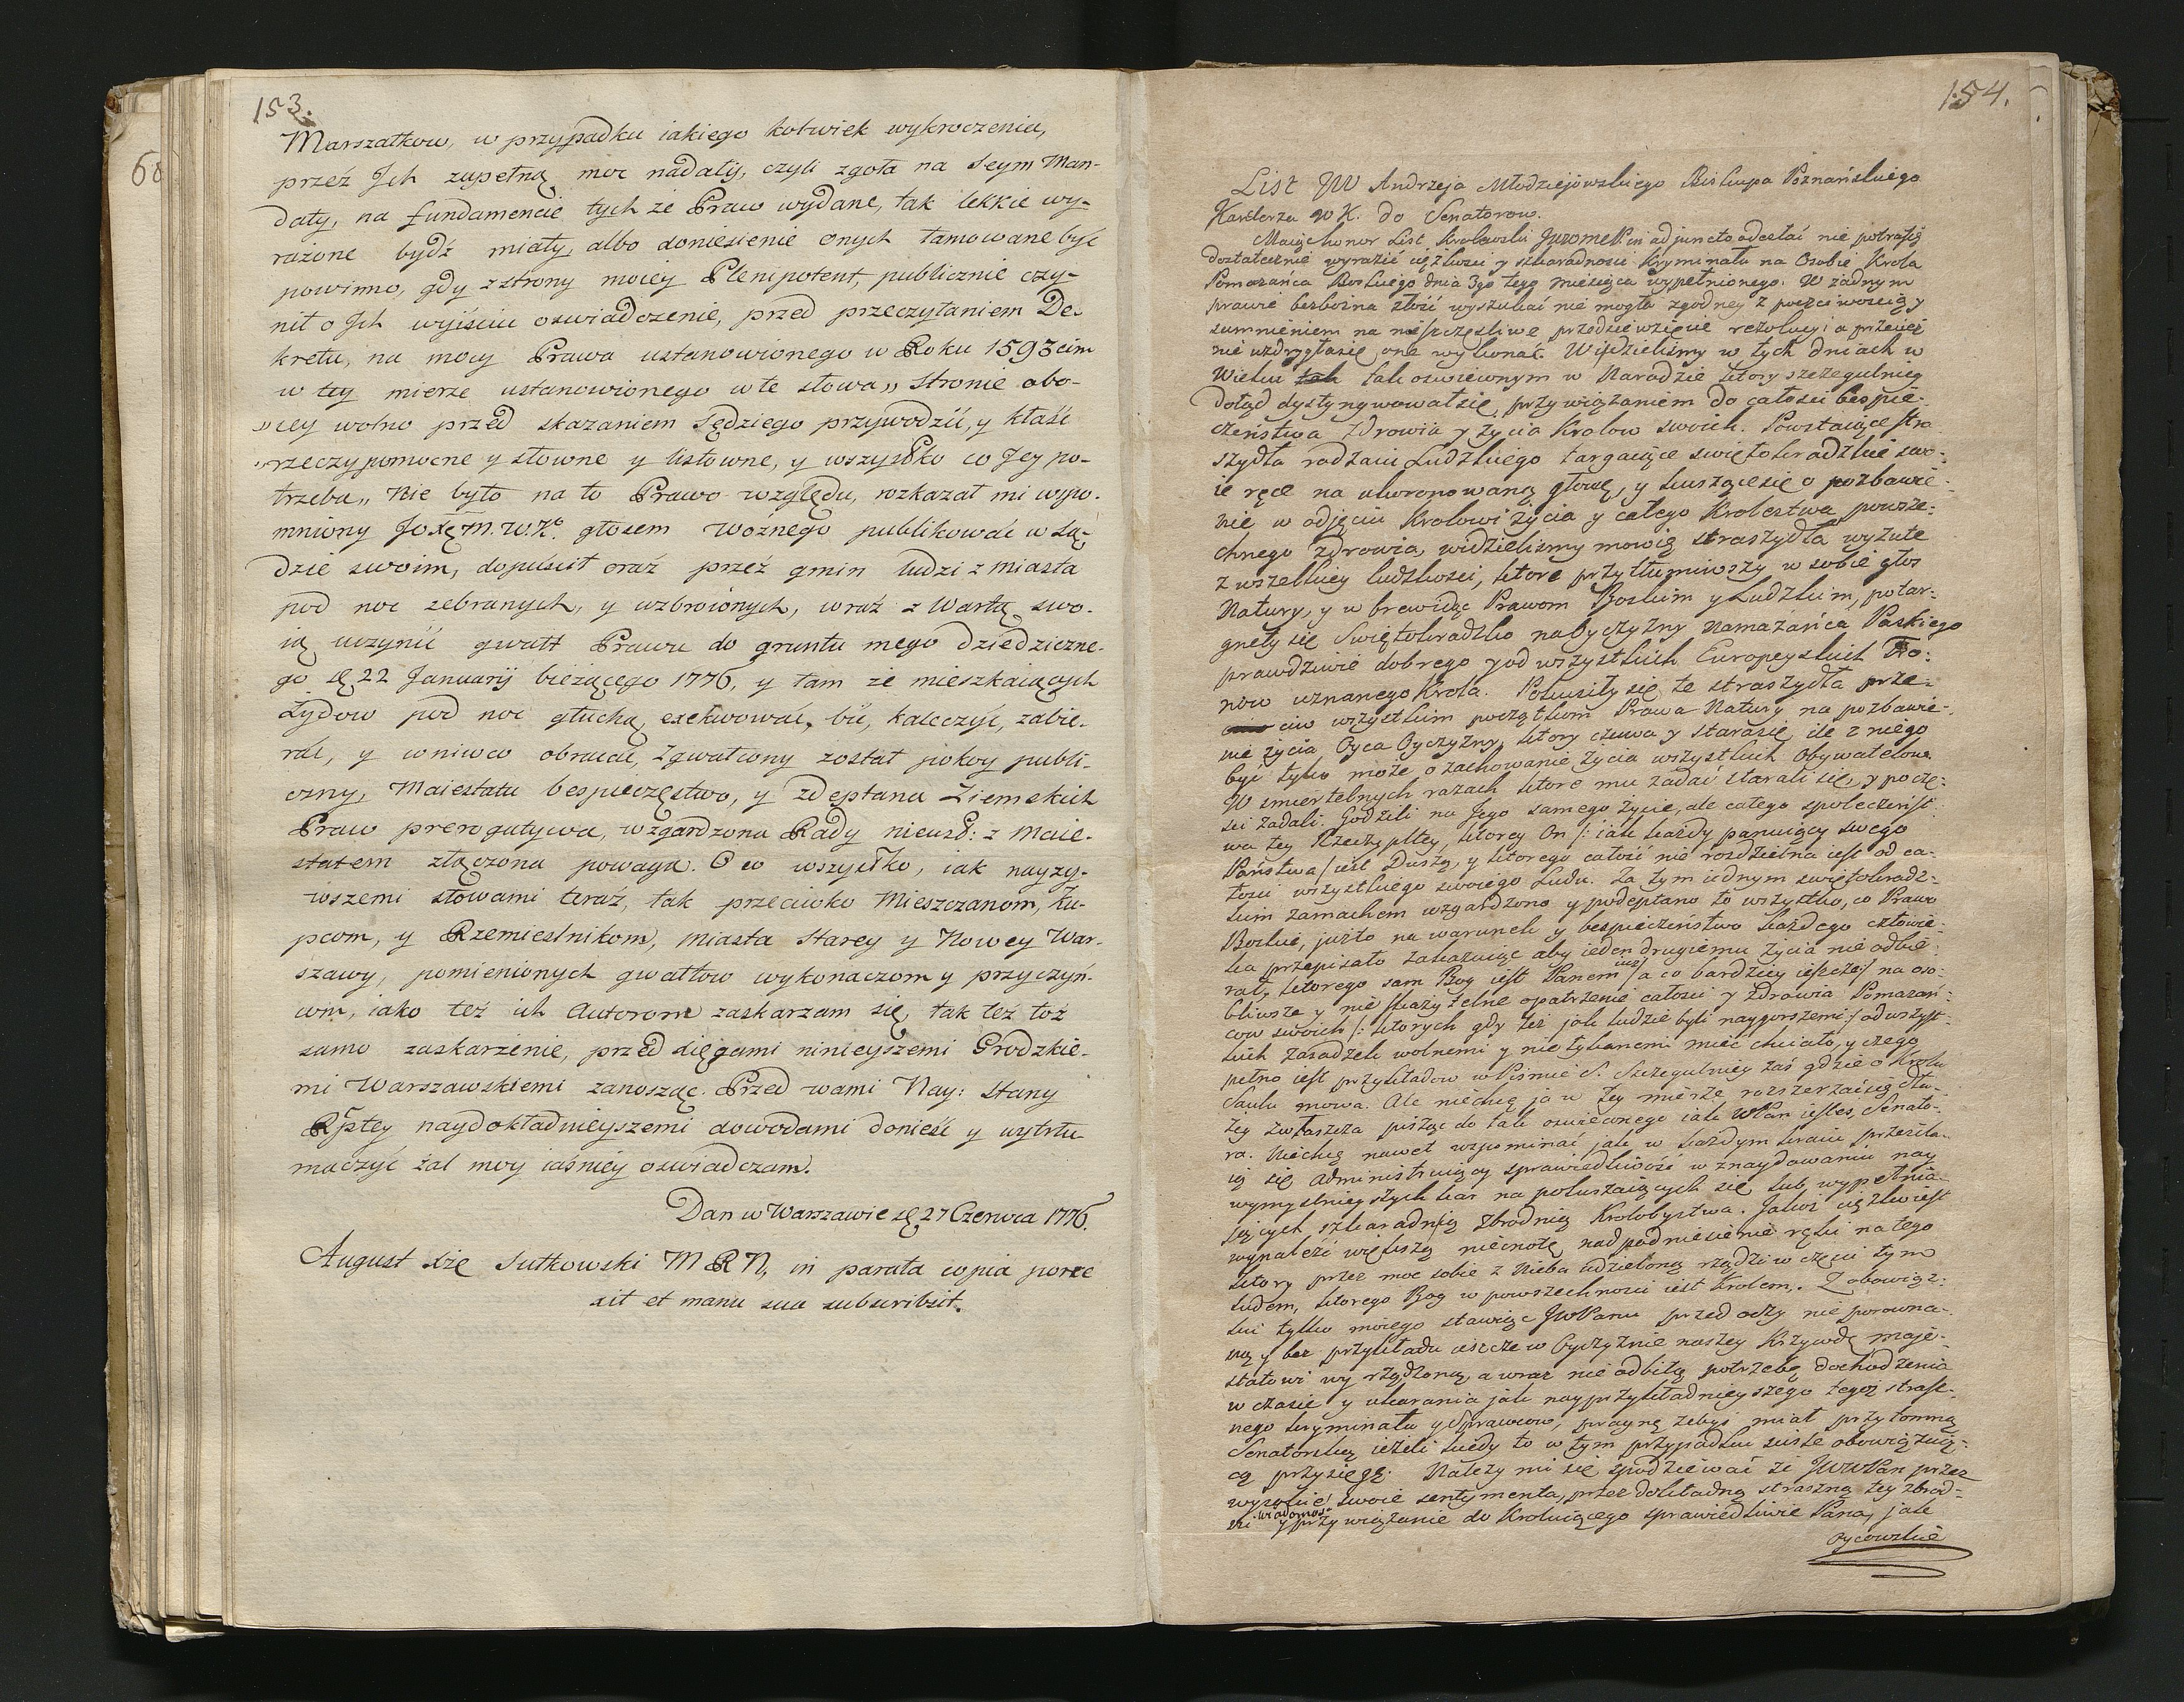 153.
Marszałkow, w przypadku iakiego kolwiek wykroczenia,
przez Jch zupełną moc nadały, czyli zgoła na Seym Man-
daty, na fundamencie tych że Praw wydane, tak lekkie wy-
rażone bydź miały, albo doniesienie onych tamowane być
powinno, gdy z strony moiey Plenipotent, publicznie czy-
nił o Jch wyiściu oswiadczenie, przed przeczytaniem De-
kretu, na mocy Prawa ustanowionego w Roku 1593cim
w tey mierze ustanowionego w te słowa „ Stronie obo-
„iey wolno przed skazaniem Sędziego przywodzić, y kłaść
„rzeczy pomocne y słowne y listowne, y wszystko co Jey po-
trzeba „ Nie było na to Prawo względu, rozkazał mi wspo-
mniony JOXę M. W. Kº. głosem Woźnego publikować w Są-
dzie swoim, dopuścił oraz przez gmin ludzi z miasta
pod noc zebranych, y uzbroionych, wraz z Wartą swo-
ią uczynić gwałt Prawu do gruntu mego dziedziczne-
go dę 22 Januarij bieżącego 1776, y tam że mieszkaiących
Żydow pod noc głuchą exekwować, bić, kaleczyć, zabie-
rać, y wniwco obracać, Zgwałcony został pokoy publi-
czny, Maiestatu bespieczęstwo, y zdeptana Ziemskich
Praw prerogatywa, wzgardzona Rady nieust: z Maie-
statem złączona powaga. O co wszystko, iak nayży-
wszemi słowami teraz, tak przeciwko Mieszczanom, Ku-
pcom, y Rzemieslnikom, miasta Starey y Nowey War-
szawy, pomienionych gwałtow wykonaczom y przyczyń-
com, iako też ich Autorom zaskarzam się, tak też toż
samo zaskarżenie, przed xięgami ninieyszemi Grodzkie-
mi Warszawskiemi zanosząc. Przed wami Nay: Stany
Rpltey naydokładnieyszemi dowodami donieść y wytłu-
maczyć żal moy iaśniey oswiadczam.
Dan w Warszawie dę 27 Czerwca 1776.
August Xże Sułkowski M R N, in parata copia porre
xit et manu sua subscribsit.
154.
List JW Andrzeja Młodziejowskiego Biskupa Poznańskiego
Kanclerza W K. do Senatorow.
Maiąc honor List Krolewski JWWMP. in adjuncto odesłać nie potrafię
dostatecznie wyrazić ciężkosci y szkaradnosci Kryminału na Osobie Krola
Pomazańca Boskiego dnia 3go tego miesiąca wypełnionego. W żadnym
prawie bezbożna złość wyszukać nie mogła zgodney z poczciwoscią y
sumnieniem na nieszczęsliwe przedsięwzięcie rezolucyi a przecież
nie wzdrygła się one wykonać. Widzielismy w tych dniach w
Wieku tak oswieconym w Narodzie ktory szczegulniey
dotąd dystyngwował się przywiązaniem do całosci bespie-
czeństwa Zdrowia y życia Krolow swoich. Powstaiące stra
szydła rodzaiu Ludzkiego targaiące swiętokradzkie swo-
ie ręce na ukoronowaną głowę, y kusząc się o pozbawie-
nie w odjęciu Krolowi życia y całego Krolestwa powsze-
chnego zdrowia, widzielismy mowię straszydła wyzute
z wszelkiey ludzkosci, ktore przytłumiwszy w sobie głos
Natury, y w brew idąc Prawom Boskim y Ludzkim, potar-
gneły się Swiętokradzko na Oyczyzny Namazańca Paskiego
prawdziwie dobrego y od wszystkich Europeyskich Tro-
now uznanego Krola. Pokusiły się te straszydła prze-
ciw wszystkim początkom Prawa Natury na pozbawie-
nie życia Oyca Oyczyzny, ktory czuwa y stara się, ile z niego
być tylko może, o zachowanie życia wszystkich Obywatelow
W smiertelnych razach ktore mu zadać starali się, y po czę-
sci zadali. Godzili na Jego samego życie, ale całego społeczeńst-
wa tey Rzeczyplltey, ktorey On /: iak każdy panuiący swego
Państwa / iest Duszą, y ktorego całość nie rozdzielna iest od ca-
łosci wszystkiego swoiego Ludu. Za tym iednym swiętokradz-
kim zamachem wzgardzono y podeptano to wszystko, co Prawo
Boskie, już to na warunek y bespieczeństwo każdego człowie-
ka przepisało zakazuiąc aby ieden drugiemu życia nie odbie-
rał, ktorego sam Bog iest Panem już / a co bardziey ieszcze / na oso-
bliwsze y nie skażytelne opatrzenie całosci y Zdrowia Pomazań-
cow swoich /: ktorych gdy też jak ludzie byli naygorszemi :/ od wszyst-
kich zasadzek wolnemi y nietykanemi mieć chciało, y czego
pełno iest przykładow w Pismie S. Szczegulniey zaś gdzie o Krolu
Saulu mowa. Ale niechcę ja w tey mierze rozszerzać się dłu-
żey zwłaszcza pisząc do tak oswieconego iak WPan iestes, Senato-
ra. Niechcę nawet wspominać jak w każdym kraiu przesila-
ią się administruiący sprawiedliwość w znaydowaniu nay
wymyslnieyszych kar na pokuszaiących się lub wypełnia-
iących szkaradną Zbrodnią Krolobystwa. Jakoż ciężko iest
wynaleźć większą niecnotę nad podniesienie ręki na tego
ktory przez moc sobie z Nieba udzieloną rządzi w częsci tym
ludem, ktorego Bog w powszechnosci iest Krolem. Z obowiąz-
ku tylko moiego stawiąc JWPanu przed oczy nie porowna-
ną y bez przykładu ieszcze w Oyczyznie naszey Krzywdę maje-
statowi wyrządzoną, a wraz nie odbitą potrzebę dochodzenia
w czasie y ukarania jak nayprzykładnieyszego tegoż strasz-
nego kryminału y Sprawcow, pragnę żebyś miał przytomną
Senatorską ieżeli kiedy to w tym przypadku scisle obowiązuią-
cą przysięgę. Należy mi się spodziewać że JWWPan przez
wysokie swoie sentymenta, przez dokładną straszną tey zbrod-
ni wiadomos. y przywiązanie do Kroluiącego sprawiedliwie Pana, jak
Oycowskie